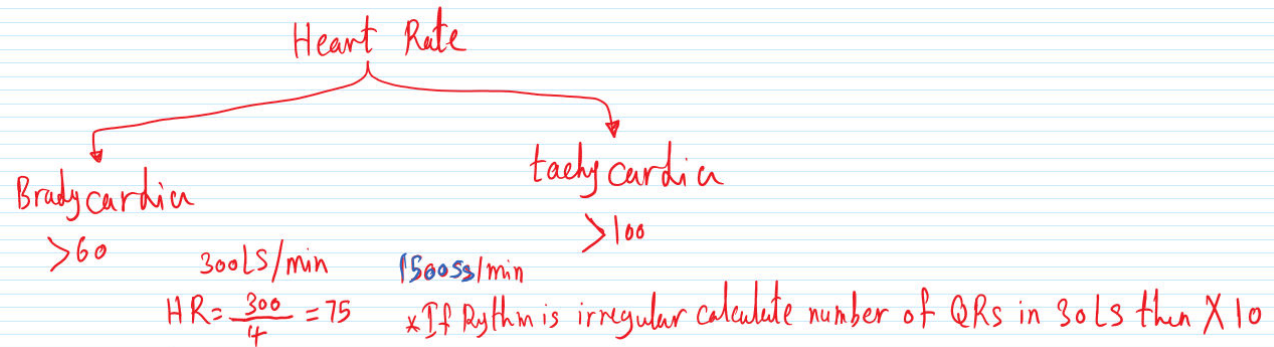 Heart Rate
Bradycardia
tachycardia
>60
>100
300LS/min
1500Ss/min
HR= 300/4 = 75
*If Rythm is irregular calculate number of QRs in 30LS then X10